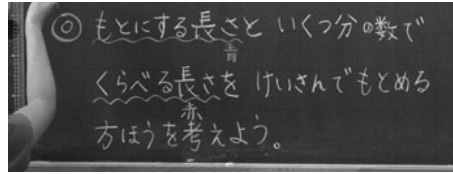 ◎ もとにする長さと いくつ分の数で
青
くらべる長さを けいさんでもとめる
赤
方ほうを考えよう。